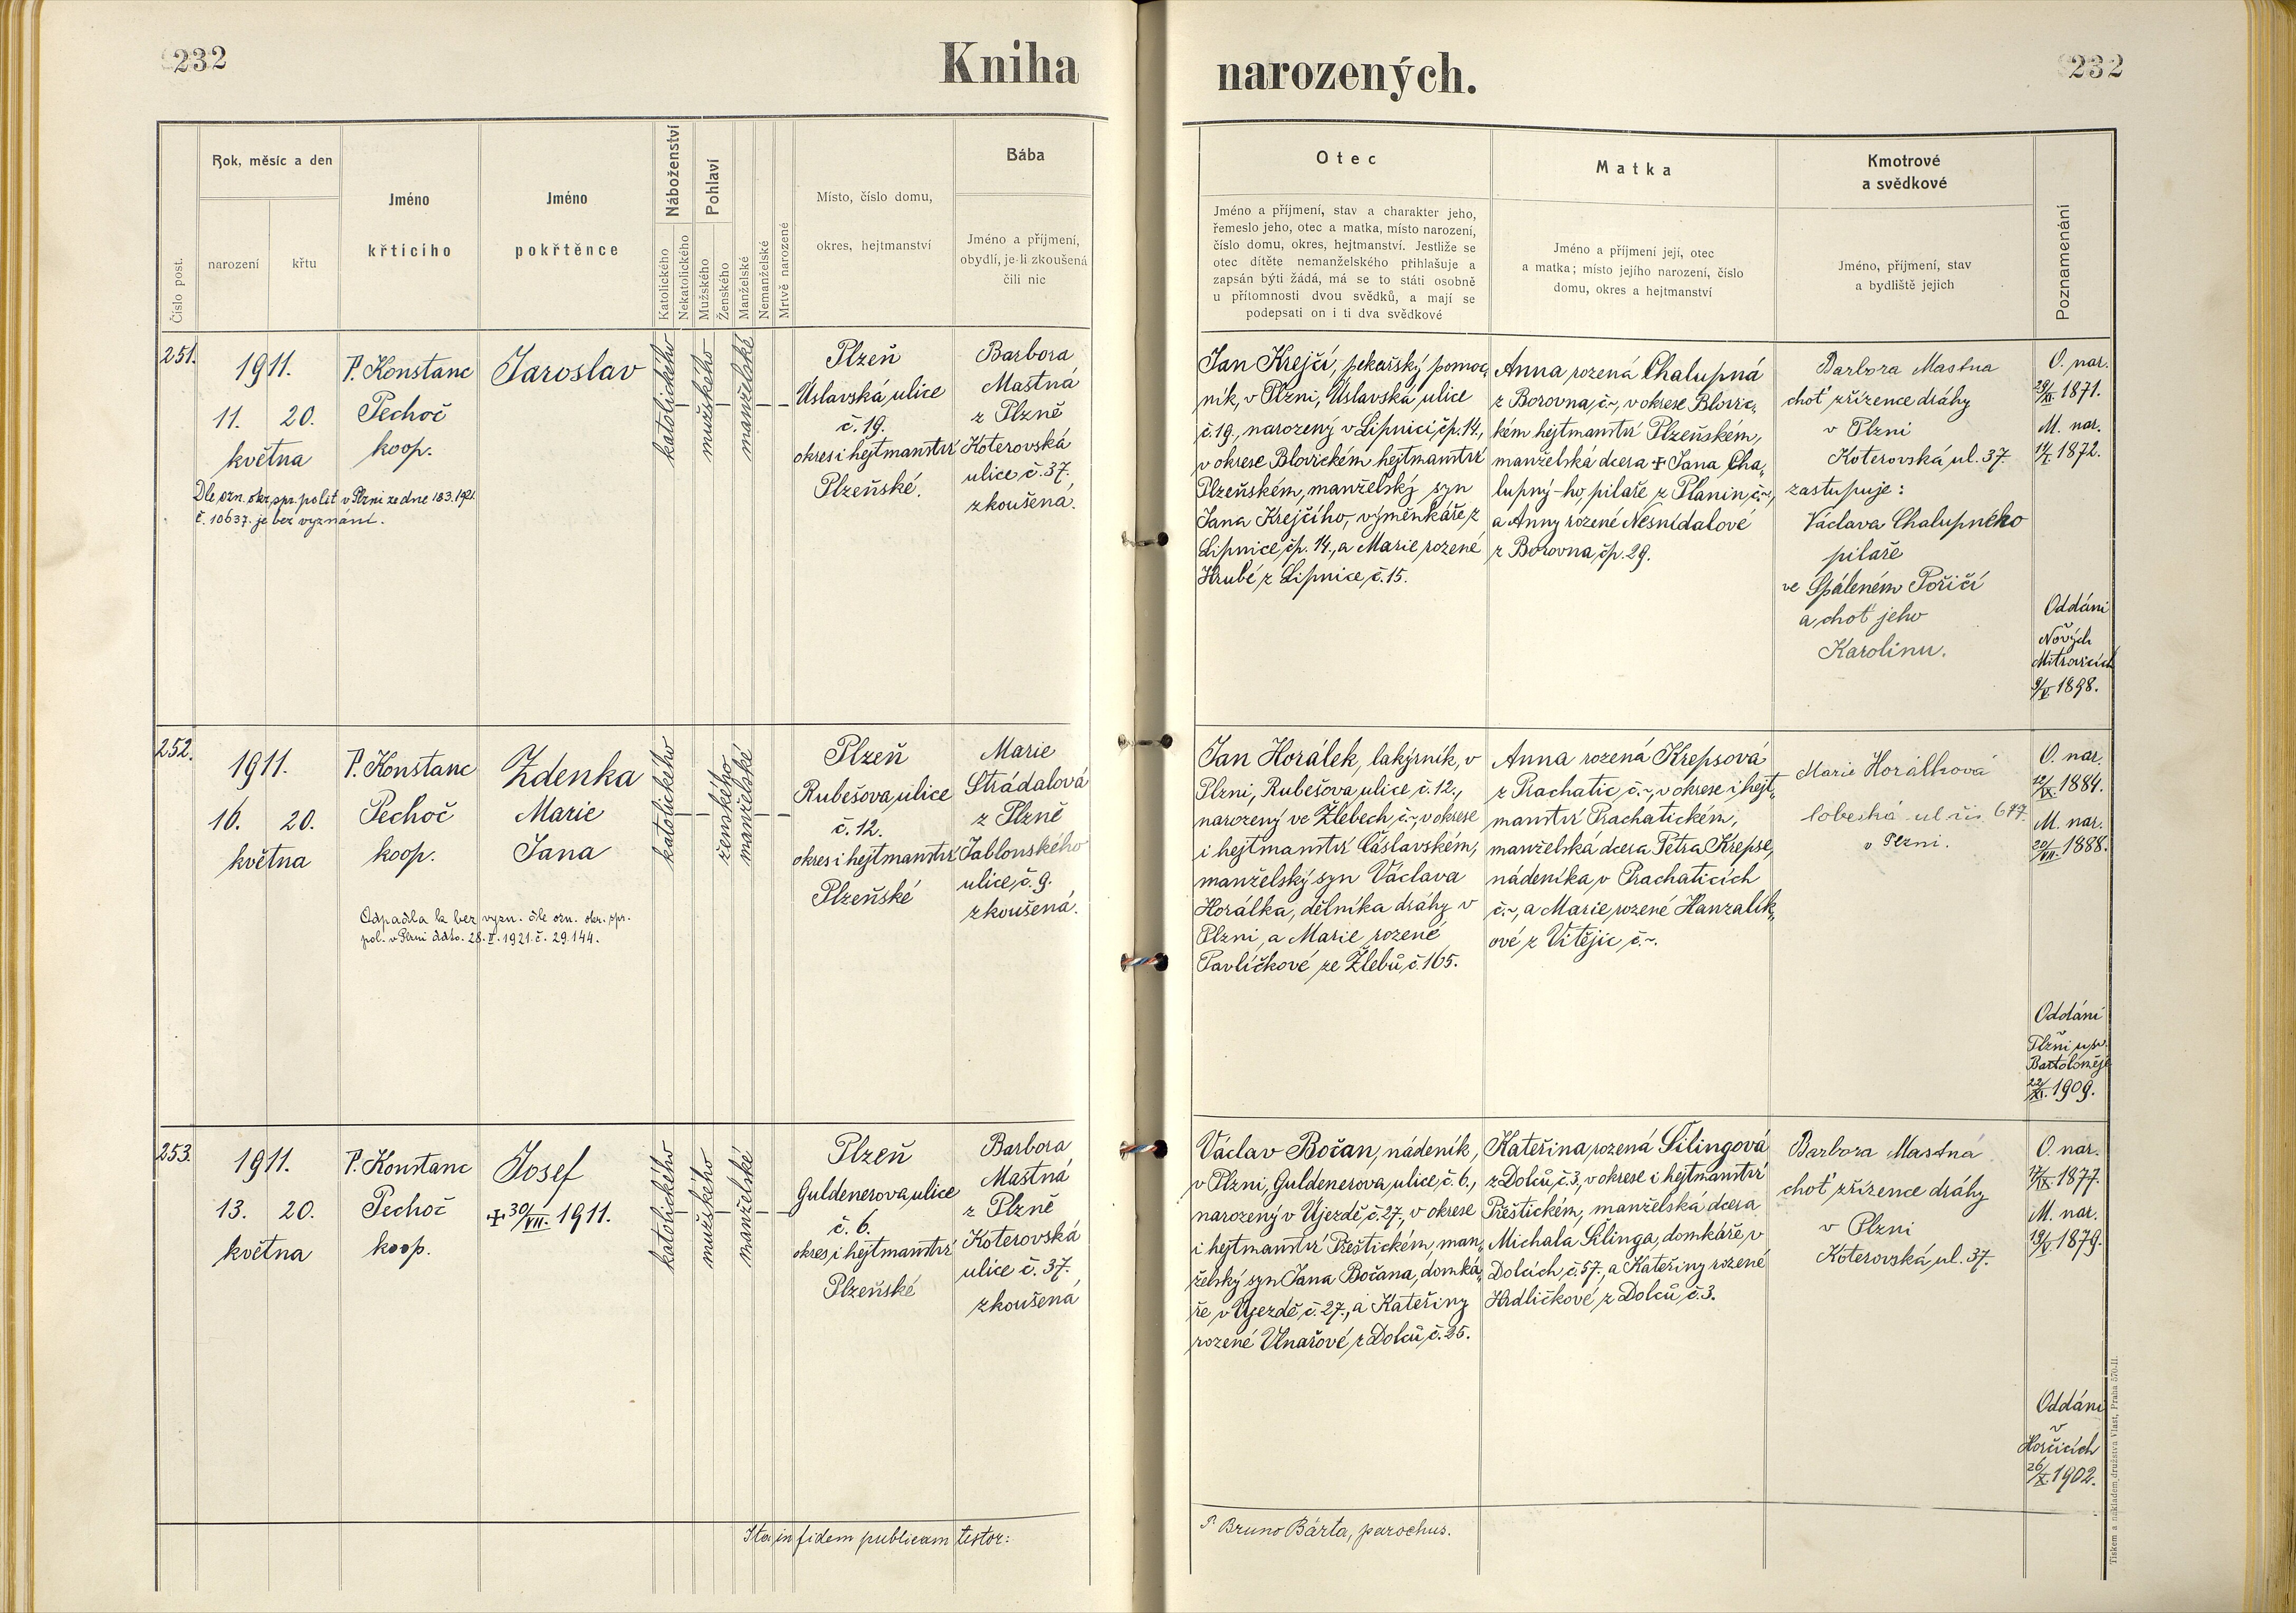 232
Kniha
narozených.
232
Číslo post.
Rok, měsíc a den
narození
křtu
Jméno
křticího
Jméno
pokřtěnce
Náboženství
Katolického
Nekatolického
Pohlaví
Mužského
Ženského
Manželské
Nemanželské
Mrtvě narozené
Místo, číslo domu,
okres, hejtmanství
Bába
Jméno a příjmení,
obydlí, je-li zkoušená
čili nic
Otec
Jméno a příjmení, stav a charakter jeho,
řemeslo jeho, otec a matka, místo narození,
číslo domu, okres, hejtmanství. Jestliže se
otec dítěte nemanželského přihlašuje a
zapsán býti žádá, má se to státi osobně
u přítomnosti dvou svědků, a mají se
podepsati on i ti dva svědkové
Matka
Jméno a příjmení její, otec
a matka; místo jejího narození, číslo
domu, okres a hejtmanství
Kmotrové
a svědkové
Jméno, příjmení, stav
a bydliště jejich
Poznamenání
251.
1911.
11. 20.
května
Dle ozn. okr. spr. polit v Plzni ze dne 18.3.1921
č. 10637. je bez vyznání.
P. Konstanc
Pechoč
koop.
Jaroslav
katolického
mužského
manželské
Plzeň
Úslavská ulice
č. 19.
okres i hejtmanství
Plzeňské.
Barbora
Mastná
z Plzně
Koterovská
ulice č. 37.
zkoušená.
Jan Krejčí, pekařský pomoc„
ník, v Plzni, Úslavská ulice
č. 19., narozený v Lipnici, čp. 14.,
v okrese Blovickém hejtmanství
Plzeňském, manželský syn
Jana Krejčího, výměnkáře z
Lipnice, čp. 14., a Marie rozené
Hrubé z Lipnice, č. 15.
Anna rozená Chalupná
z Borovna, č. ~, v okrese Blovic„
kém hejtmanství Plzeňském,
manželská dcera + Jana Cha„
lupný-ho, pilaře z Planin, č. ~,
a Anny rozené Nesnídalové
z Borovna, čp. 29.
Barbora Mastna
choť zřízence dráhy
v Plzni
Koterovská, ul. 37.
zastupuje:
Václava Chalupného
pilaře
ve Spáleném Poříčí
a choť jeho
Karolinu.
O. nar.
29/XI. 1871.
M. nar.
14/I. 1872.
Oddáni
v
Nových
Mitrovicích
9/V. 1898.
252.
1911.
16. 20.
května
P. Konstanc
Pechoč
koop.
Zdenka
Marie
Jana
Odpadla k bez vyzn. dle ozn. okr. spr.
pol. v Plzni ddto. 28. II. 1921. č. 29.144.
katolického
ženského
manželské
Plzeň
Rubešova, ulice
č. 12.
okres i hejtmanství
Plzeňské
Marie
Strádalová
z Plzně
Jablonského
ulice, č. 9.
zkoušená.
Jan Horálek, lakýrník, v
Plzni, Rubešova, ulice, č. 12.,
narozený ve Žlebech, č. ~, v okrese
i hejtmanství Čáslavském,
manželský syn Václava
Horálka, dělníka dráhy v
Plzni, a Marie rozené
Pavlíčkové ze Žlebů, č. 165.
Anna rozená Krepsová
z Prachatic č. ~, v okrese i hejt„
manství Prachatickém,
manželská dcera Petra Krepse,
nádeníka, v Prachaticích
č. ~, a Marie, rozené Hanzalík„
ové z Vitějic, č. ~.
Marie Horálková
lobeská ul čís. 677.
v Plzni.
O. nar.
12/IX. 1884.
M. nar.
20/VII. 1888.
Oddáni
v
Plzni u sv.
Bartoloměje
22/XI. 1909.
253.
1911.
13. 20.
května
P. Konstanc
Pechoč
koop.
Josef
+ 30/VII. 1911.
katolického
mužského
manželské
Plzeň
Guldenerova, ulice
č. 6.
okres i hejtmanství
Plzeňské
Barbora
Mastná
z Plzně
Koterovská
ulice č. 37.
zkoušená
Václav Bočan, nádeník,
v Plzni, Guldenerova, ulice, č. 6.,
narozený v Újezdě, č. 27., v okrese
i hejtmanství Přeštickém, man„
želský syn Jana Bočana, domká„
ře v Újezdě, č. 27., a Kateřiny
rozené Vlnařové z Dolců, č. 25.
Kateřina, rozená Šilingová
z Dolců č. 3, v okrese i hejtmanství
Přeštickém, manželská dcera
Michala Šilinga, domkáře, v
Dolcích, č. 57., a Kateřiny rozené
Hrdličkové, z Dolců, č. 3.
Barbora Mastná
choť zřízence dráhy
v Plzni
Koterovská, ul. 37.
O. nar.
17/IX. 1877.
M. nar.
13/V. 1879.
Oddáni
v
Horčicích
26/X. 1902.
Ita in fidem publicam testor:
P. Bruno Bárta, parochus.
Tiskem a nákladem družstva Vlast, Praha 570-II.